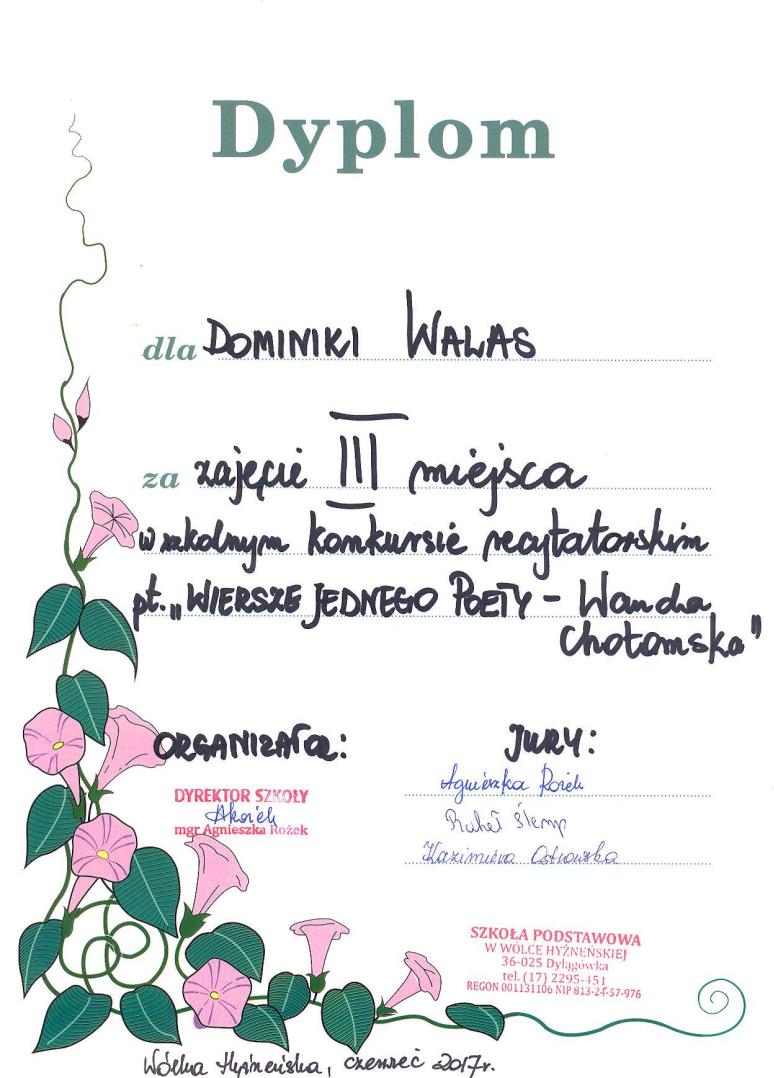 Dyplom
dla DOMINIKI WALAS
za zajęcie III miejsca
w szkolnym konkursie recytatorskim
pt. „WIERSZE JEDNEGO POETY - Wanda
Chotomska"
ORGANIZATOR:
JURY:
DYREKTOR SZKOŁY
mgr Agnieszka Rożek
Agnieszka Rożek
Rafał Ślemp
Kazimiera Ostrowska
SZKOŁA PODSTAWOWA
W WÓLCE HYŻNEŃSKIEJ
36-025 Dylągówka
tel. (17) 2295-151
REGON 001131106 NIP
Wólka Hyżneńska, czerwiec 2017r.